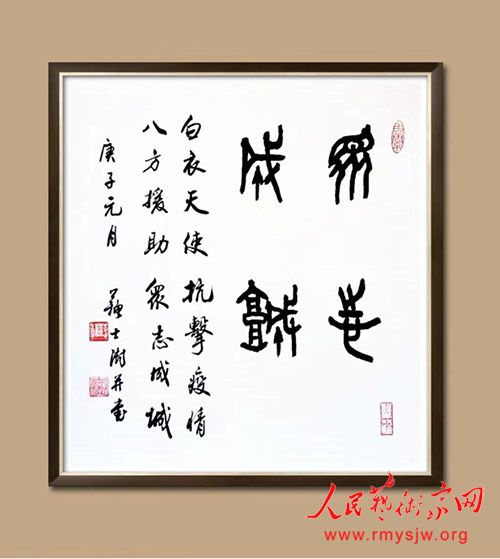 眾志
成城
白衣天使抗擊疫情
八方援助眾志成城
庚子元月
蘇士澍并書
人民藝術家网
www.rmysjw.org